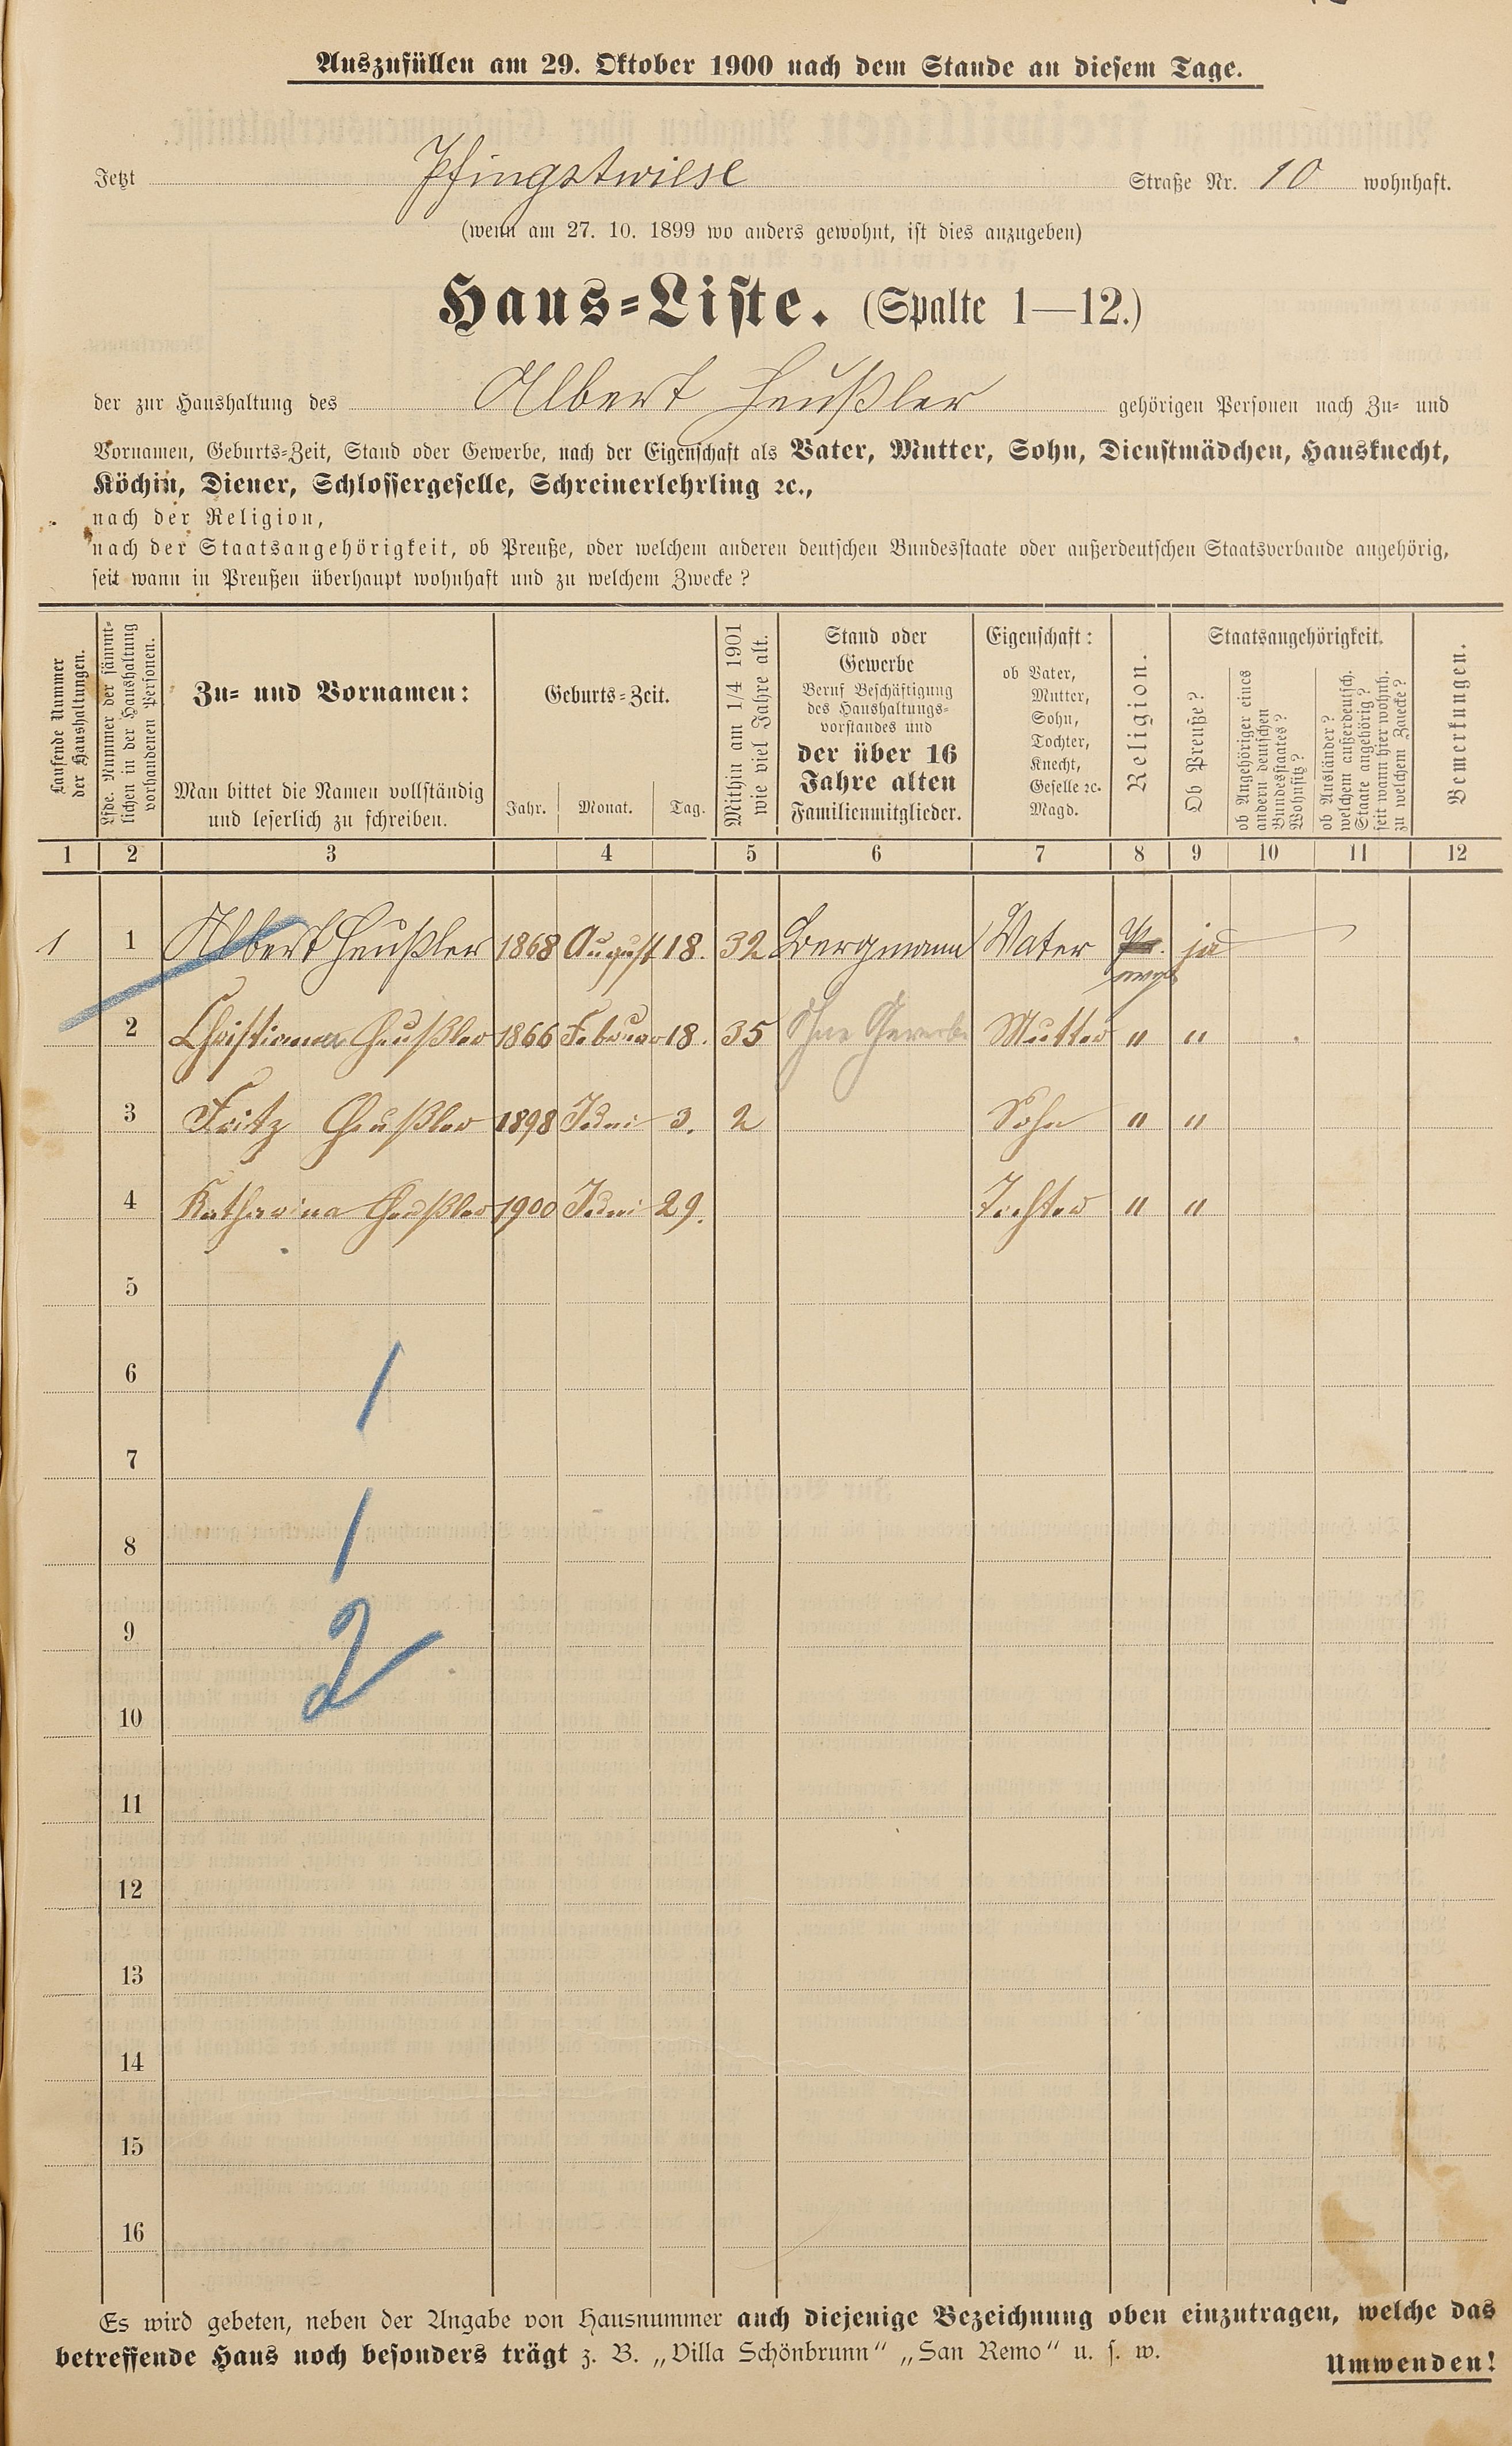 Auszufüllen am 29. Oktober 1900 nach dem Stande an diesem Tage.
Jetzt Pfingstwiese Straße Nr. 10 wohnhaft.
(wenn am 27. 10. 1899 wo anders gewohnt, ist dies anzugeben)
Haus-Liste. (Spalte 1—12.)
der zur Haushaltung des Albert Heußler gehörigen Personen nach Zu- und
Vornamen, Geburts-Zeit, Stand oder Gewerbe, nach der Eigenschaft als Vater, Mutter, Sohn, Dienstmädchen, Hausknecht,
Köchin, Diener, Schlossergeselle, Schreinerlehrling ꝛc.,
nach der Religion,
nach der Staatsangehörigkeit, ob Preuße, oder welchem anderen deutschen Bundesstaate oder außerdeutschen Staatsverbande angehörig,
seit wann in Preußen überhaupt wohnhaft und zu welchem Zwecke?
Laufende Nummer
der Haushaltungen.
Lfde. Nummer der sämmt-
lichen in der Haushaltung
vorhandenen Personen.
Zu- und Vornamen:
Man bittet die Namen vollständig
und leserlich zu schreiben.
Geburts-Zeit.
Jahr. Monat. Tag.
Mithin am 1/4 1901
wie viel Jahre alt.
Stand oder
Gewerbe
Beruf Beschäftigung
des Haushaltungs-
vorstandes und
der über 16
Jahre alten
Familienmitglieder.
Eigenschaft:
ob Vater,
Mutter,
Sohn,
Tochter,
Knecht,
Geselle ꝛc.
Magd.
Religion.
Staatsangehörigkeit.
Ob Preuße?
ob Angehöriger eines
andern deutschen
Bundesstaates?
Wohnsitz?
ob Ausländer?
welchem außerdeutsch.
Staate angehörig?
seit wann hier wohnh.
zu welchem Zwecke?
Bemerkungen.
1 2 3 4 5 6 7 8 9 10 11 12
1 1 Albert Heußler 1868 August 18. 32 Bergmann Vater evgl ja
2 Christiana Heußler 1866 Februar 18. 35 Ohne Gewerbe Mutter " "
3 Fritz Heußler 1898 Juni 3. 2 Sohn " "
4 Katharina Heußler 1900 Juni 29. Tochter " "
5
6
1
7
8
1
9
2
10
11
12
13
14
15
16
Es wird gebeten, neben der Angabe von Hausnummer auch diejenige Bezeichnung oben einzutragen, welche das
betreffende Haus noch besonders trägt z. B. „Villa Schönbrunn“ „San Remo“ u. s. w.
Umwenden!